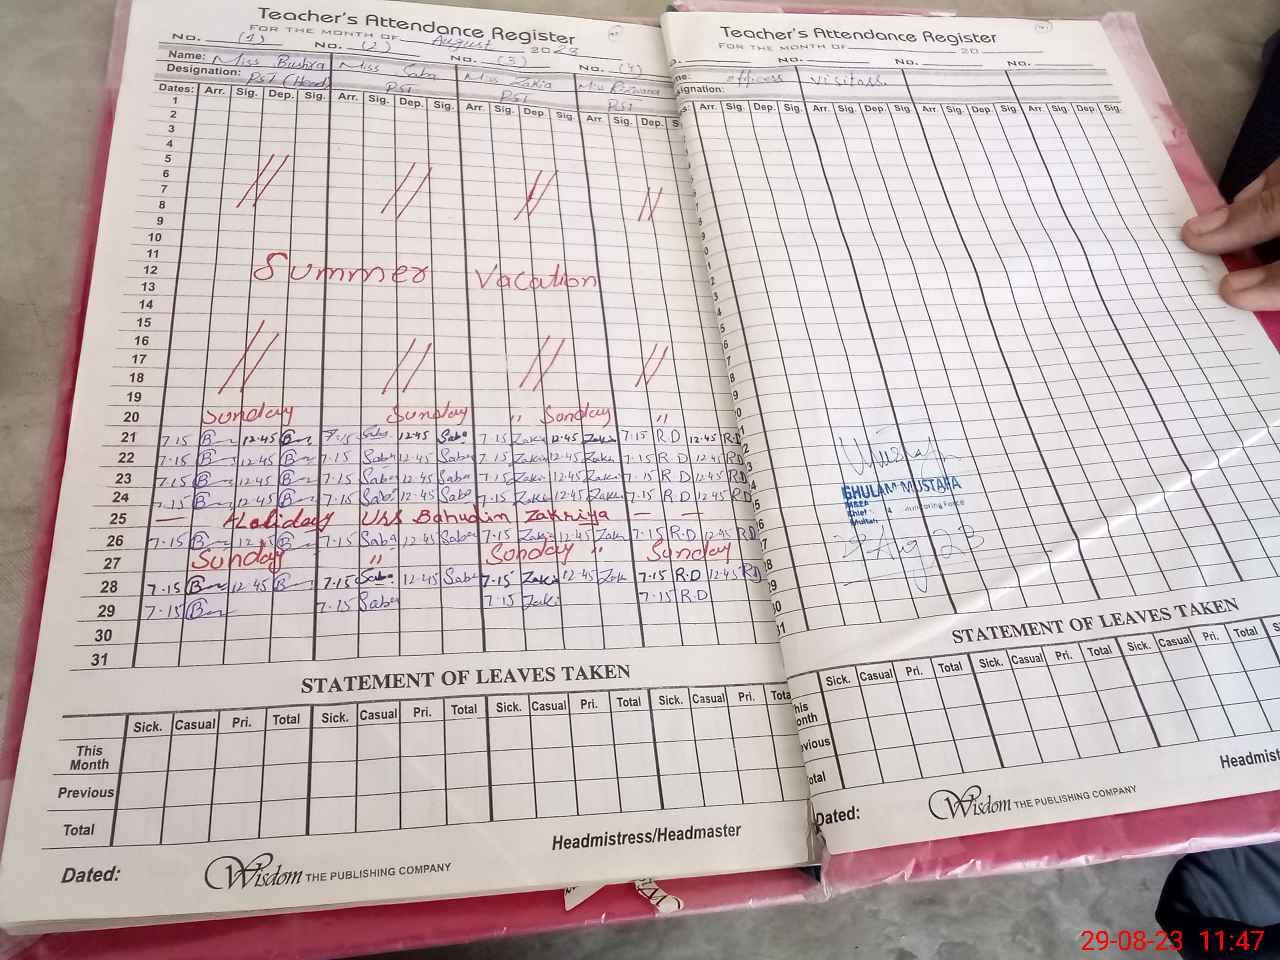 Teacher's Attendance Register
FOR THE MONTH OF August 2023
No. (1) No. (2) No. (3) No. (4)
Name: Miss Bushra Miss Saba Miss Zakia
Designation: PST (Head) PST PST PST
Dates: Arr. Sig. Dep. Sig. Arr. Sig. Dep. Sig. Arr. Sig. Dep. Sig. Arr. Sig. Dep. S
1
2
3
4
5
6
7
8
9
10
11
12 Summer Vacation
13
14
15
16
17
18
19
20 Sunday Sunday " Sunday "
21 7·15 B 12·45 B 7·15 Saba 12·45 Saba 7·15 Zaki 12·45 Zaki 7·15 R.D 12·45 R.D
22 7·15 B 12·45 B 7·15 Saba 12·45 Saba 7·15 Zaki 12·45 Zaki 7·15 R.D 12·45 R.D
23 7·15 B 12·45 B 7·15 Saba 12·45 Saba 7·15 Zaki 12·45 Zaki 7·15 R.D 12·45 R.D
24 7·15 B 12·45 B 7·15 Saba 12·45 Saba 7·15 Zaki 12·45 Zaki 7·15 R.D 12·45 R.D
25 — Holiday Urs Bahudin Zakriya — —
26 7·15 B 12·45 B 7·15 Saba 12·45 Saba 7·15 Zaki 12·45 Zaki 7·15 R.D 12·45 R.D
27 Sunday " Sunday " Sunday
28 7·15 B 12·45 B 7·15 Saba 12·45 Saba 7·15 Zaki 12·45 Zaki 7·15 R.D 12·45 R.D
29 7·15 B 7·15 Saba 7·15 Zaki 7·15 R.D
30
31
STATEMENT OF LEAVES TAKEN
Sick. Casual Pri. Total Sick. Casual Pri. Total Sick. Casual Pri. Total Sick. Casual Pri. Tota
This Month
Previous
Total
Headmistress/Headmaster
Dated:
Wisdom THE PUBLISHING COMPANY
Teacher's Attendance Register
FOR THE MONTH OF 20
No. No. No.
me: officers visitors
signation:
s: Arr. Sig. Dep. Sig. Arr. Sig. Dep. Sig. Arr. Sig. Dep. Sig. Arr. Sig. Dep. Sig.
GHULAM MUSTAFA
Chief Monitoring Force
Multan
Aug 23
STATEMENT OF LEAVES TAKEN
Sick. Casual Pri. Total Sick. Casual Pri. Total Sick. Casual Pri. Total S
his onth
vious
otal
Headmist
Dated:
Wisdom THE PUBLISHING COMPANY
29-08-23 11:47